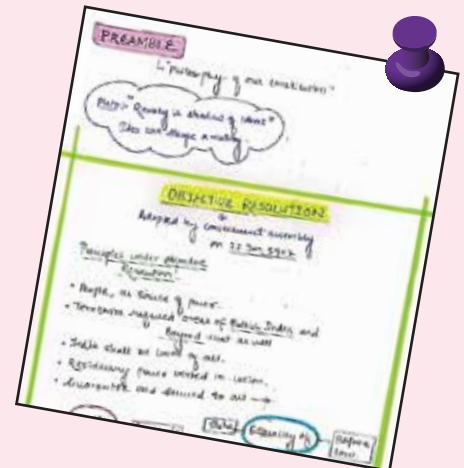 PREAMBLE
"philosophy of our constitution"
Plato: "Reality is shadow of ideas"
Idea can shape a reality.
OBJECTIVE RESOLUTION
Adopted by constituent assembly
on 22 Jan,
Principles under objective
Resolution:
• People, as source of power.
• Territories areas of British India and
Beyond that as well
• India shall be of all.
• Residuary power vested in union.
• Guarantee and secured to all →
Equality of
Before
Law